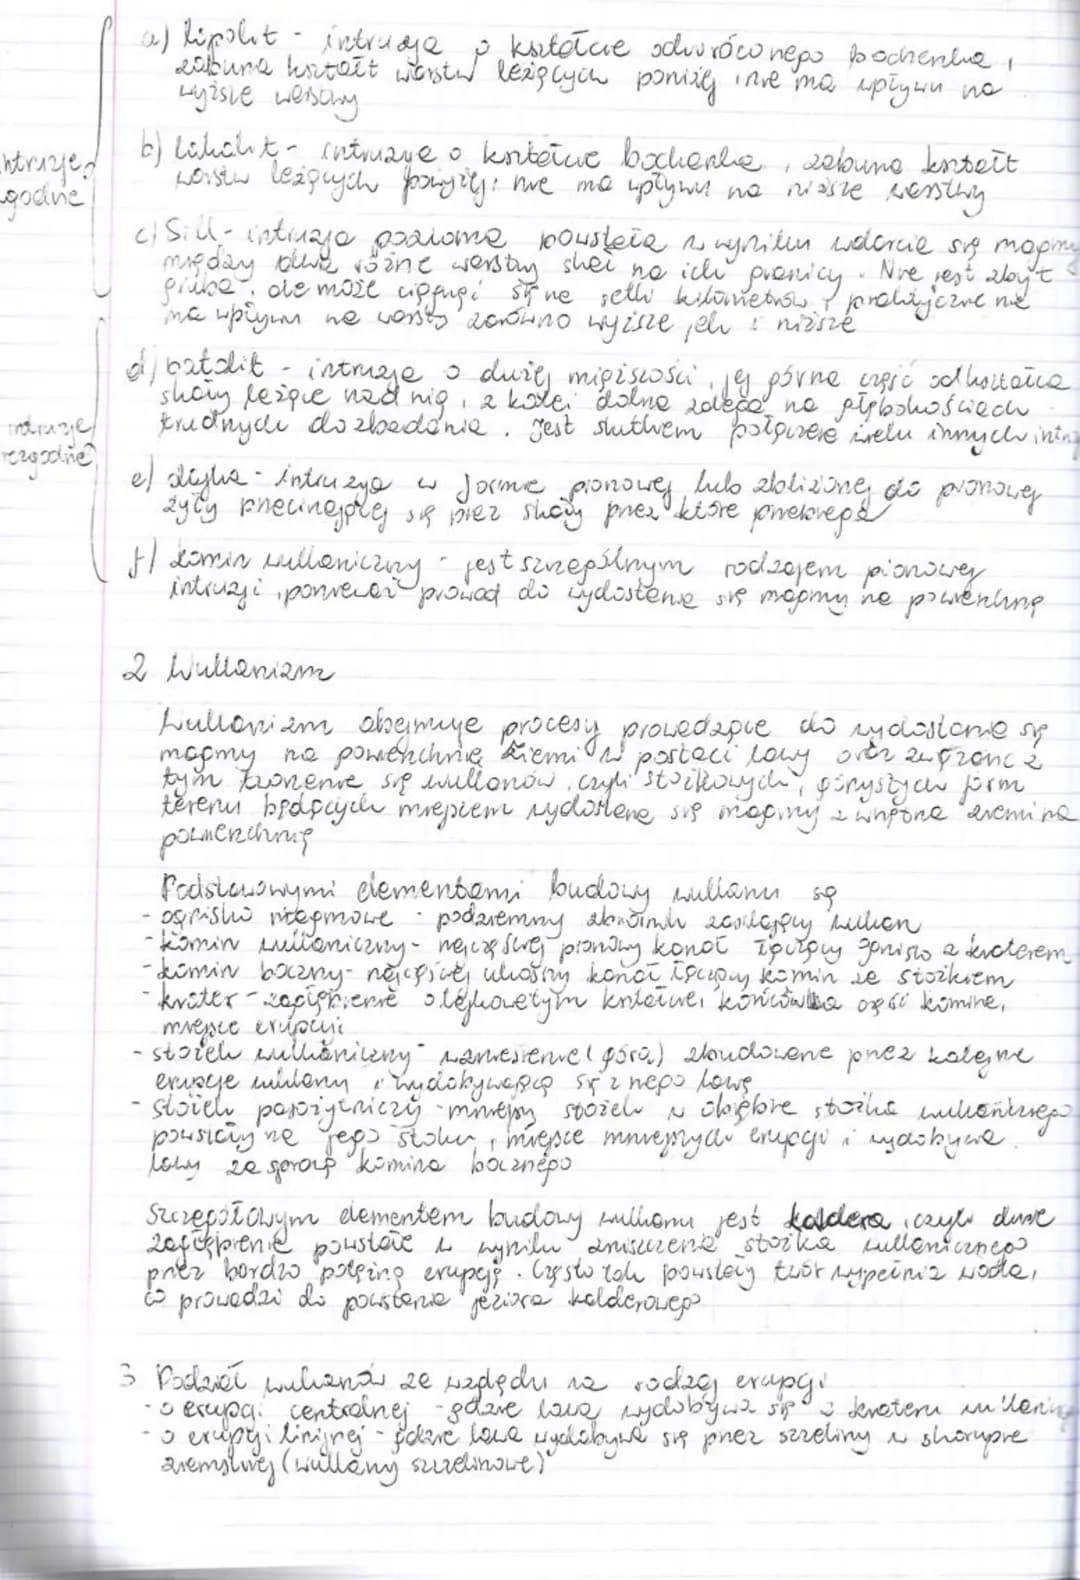 a) lipolit - intruzja o kształcie odwróconego bochenka,
zaburza kształt warstw leżących poniżej i nie ma wpływu na
wyższe warstwy
intruzje
zgodne
b) lakolit - intruzja o kształcie bochenka, zaburza kształt
warstw leżących powyżej i nie ma wpływu na niższe warstwy
c) Sill - intruzja pozioma powstała w wyniku wdarcia się magmy
między dwie różne warstwy skał na ich granicy. Nie jest zbyt
gruba, ale może ciągnąć się na setki kilometrów i praktycznie nie
ma wpływu na warstwy zarówno wyższe jak i niższe
d) batolit - intruzja o dużej miąższości, jej górna część odkształca
skały leżące nad nią, z kolei dolna zalega na głębokościach
trudnych do zbadania. Jest skutkiem połączenia wielu innych
intruzje
niezgodne
e) dajka - intruzja w formie pionowej lub zbliżonej do pionowej
żyły przecinającej się przez skały przez które przebiega
f) komin wulkaniczny - jest szczególnym rodzajem pionowej
intruzji, ponieważ prowadzi do wydostania się magmy na powierzchnię
2 Wulkanizm
Wulkanizm obejmuje procesy prowadzące do wydostania się
magmy na powierzchnię Ziemi w postaci lawy oraz związane z
tym tworzenie się wulkanów, czyli stożkowych, górzystych form
terenu będących miejscem wydostania się magmy z wnętrza ziemi na
powierzchnię
Podstawowymi elementami budowy wulkanu są
- ognisko magmowe - podziemny zbiornik zasilający wulkan
- komin wulkaniczny - najczęściej pionowy kanał łączący ognisko z kraterem
- komin boczny - najczęściej ukośny kanał łączący komin ze stożkiem
- krater - zagłębienie o lejkowatym kształcie, końcówka część komina,
miejsce erupcji
- stożek wulkaniczny - wzniesienie (góra) zbudowane przez kolejne
erupcje wulkanu i wydobywającą się z niego lawę
- stożek pasożytniczy - mniejszy stożek w obrębie stożka wulkanicznego
powstały na jego stoku, miejsce mniejszych erupcji i wydobycia
lawy za sprawą komina bocznego
Szczególowym elementem budowy wulkanu jest kaldera, czyli duże
zagłębienie powstałe w wyniku zniszczenia stożka wulkanicznego
przez bardzo potężną erupcję. Często tak powstały twór wypełnia woda,
co prowadzi do powstania jeziora kalderowego
3 Podział wulkanów ze względu na rodzaj erupcji
- o erupcji centralnej - gdzie lawa wydobywa się z krateru
- o erupcji linijnej - gdzie lawa wydobywa się przez szczeliny w skorupie
ziemskiej (wulkany szczelinowe)